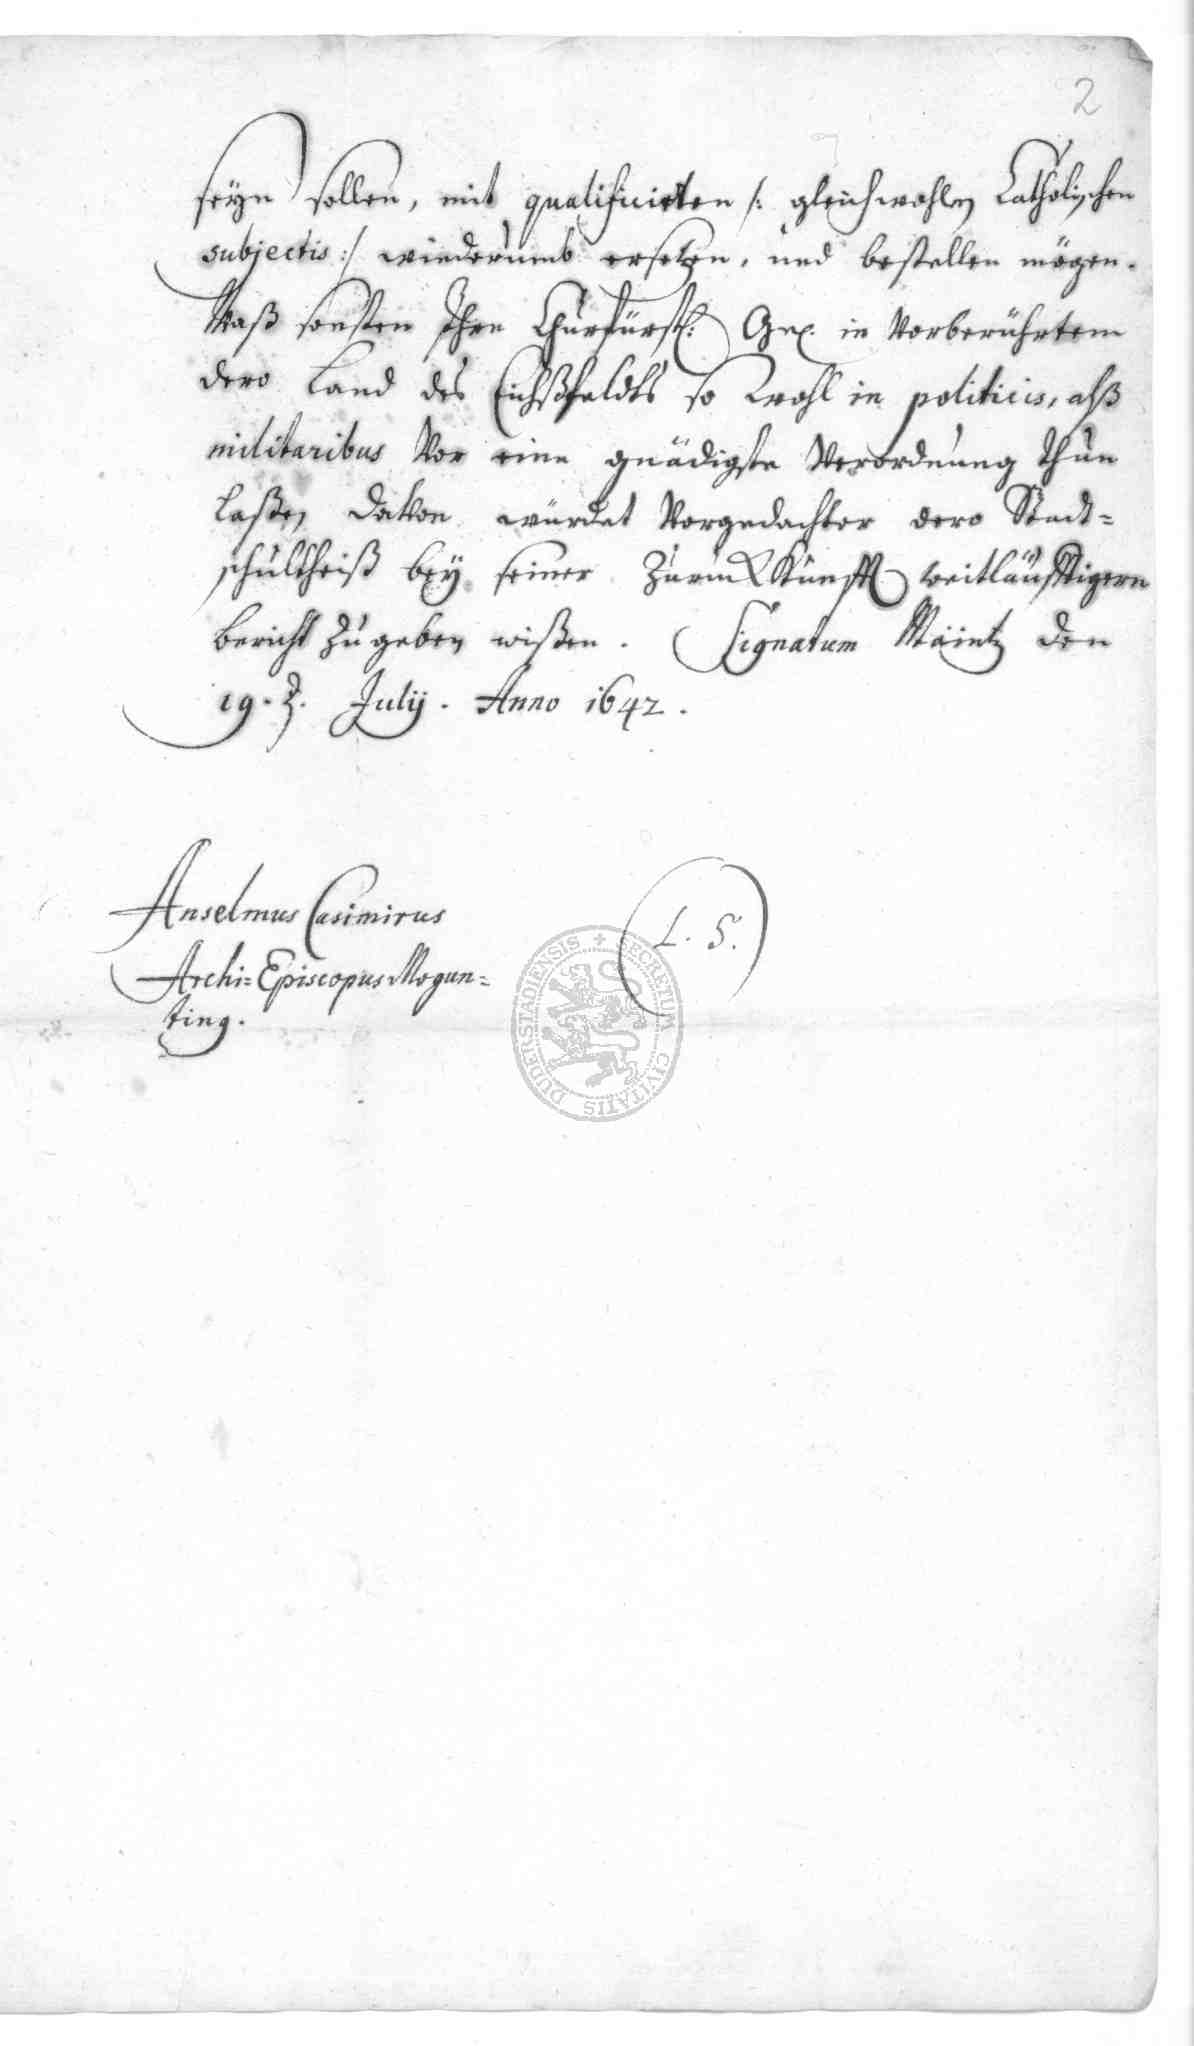 2
seÿn sollen, mit qualificirten /: gleichwohlen Catholischen
subjectis :/ wiederumb ersetzen, und bestellen mögen.
Waß sonsten Ihre Churfürstl: Gn. in Vorberührtem
dero Land des Eichßfeldts so wohl in politicis, alß
militaribus Vor eine gnädigste Verordnung thun
laßen, davon würdet Vorgedachter dero Stadt=
schultheiß beÿ seiner Zurückkunfft weitläufftigern
bericht zu geben wißen. Signatum Mäintz den
19. t. Julij. Anno 1642.
Anselmus Casimirus
Archi=Episcopus Mogun=
tinq.
L. S.
SECRETUM CIVITATIS DUDERSTADIENSIS